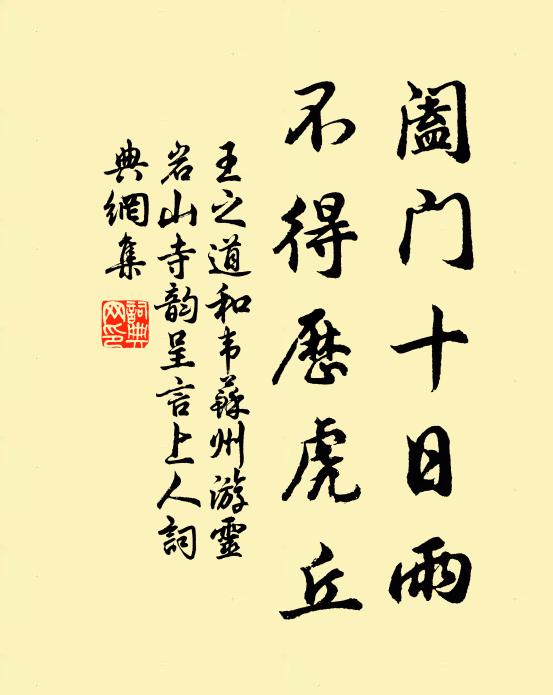 阖门十日雨
不得歷虎丘
王之道和韦蘇州游靈
岩山寺韵呈言上人詞
典網集
詞典
网印